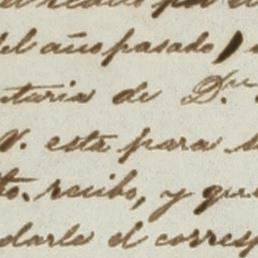 del año pasado,
taria de D.ⁿ
V. esta para
to. recibo, y que
darle el corresp